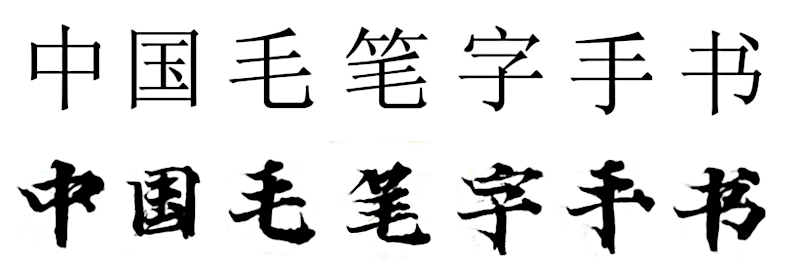 中国毛笔字手书
中国毛笔字手书